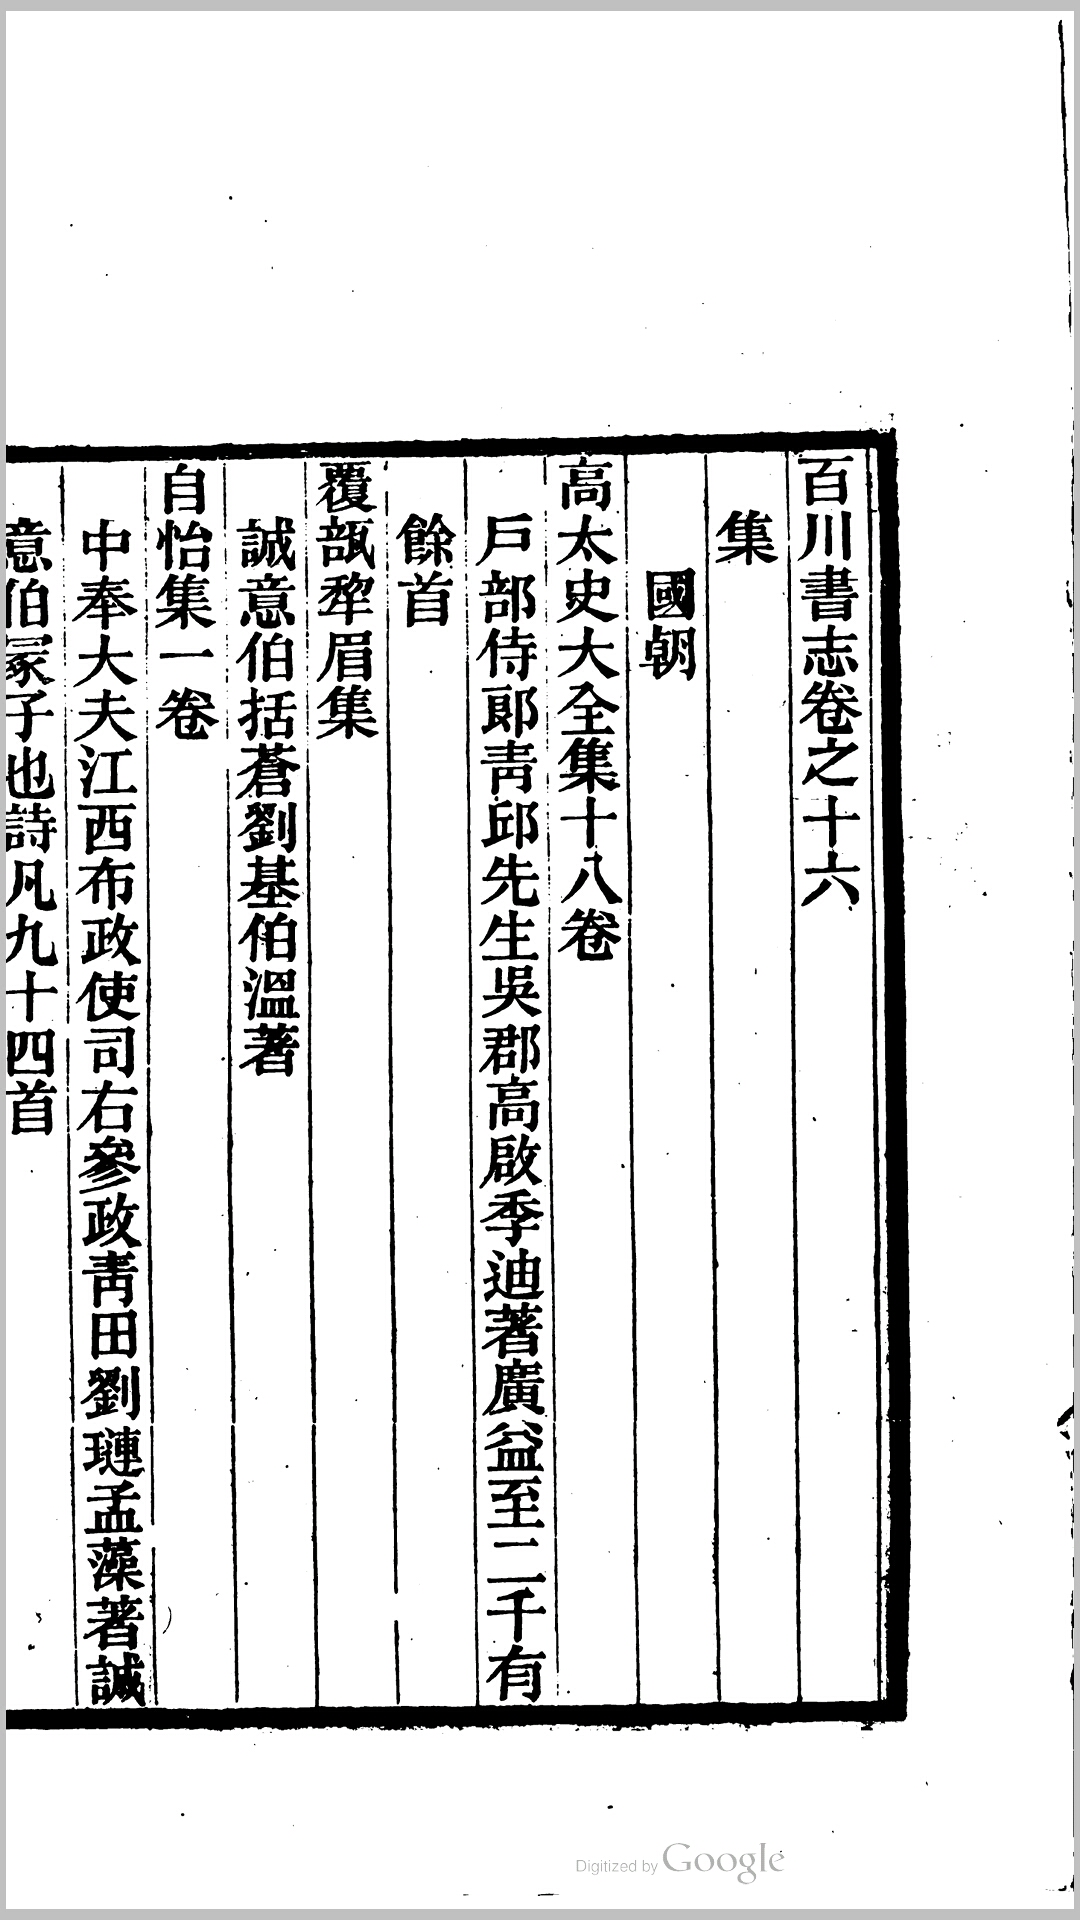 百川書志卷之十六
集
國朝
高太史大全集十八卷
戶部侍郎靑邱先生吳郡高啟季迪著廣益至二千有
餘首
覆瓿犂眉集
誠意伯括蒼劉基伯溫著
自怡集一卷
中奉大夫江西布政使司右參政靑田劉璉孟藻著誠
意伯冢子也詩凡九十四首
Digitized by Google